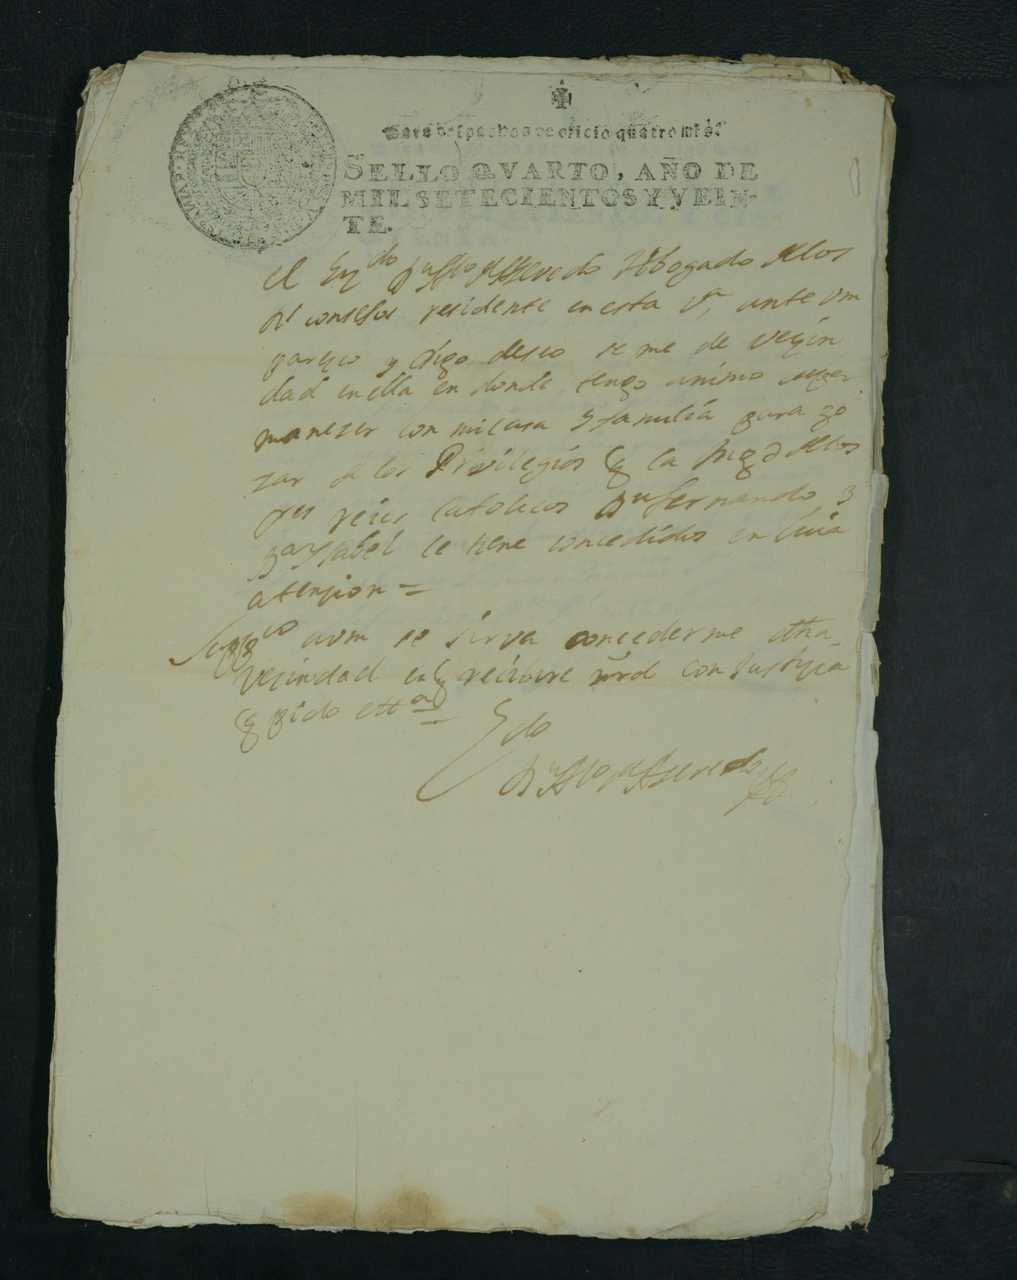 Para despachos de oficio quatro mrs.
SELLO QVARTO, AÑO DE
MIL SETECIENTOS Y VEIN-
TE.
el Lizdo Dn Assevedo Abogado de los
Rs consejos residente en esta va, ante vm
parezco y digo deseo se me de vezin
dad en ella en donde tengo animo de per
manezer con mi casa y familia para go
zar de los Privilegios q la Magd de los
Sres reies Catolicos Dn fernando y
Da Ysabel le tiene concedidos en cuia
atenzion =
Suppco a vm se sirva concederme dha
vezindad en q recibire mrd con Justizia
q pido etta
Ldo
Dn de Assevedo